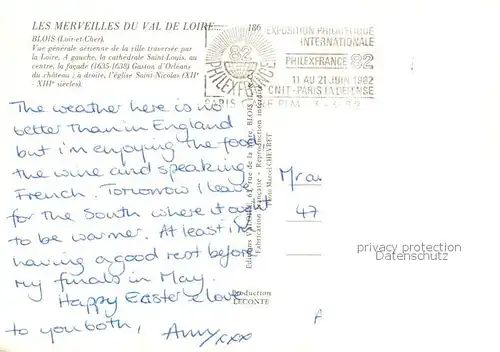 LES MERVEILLES DU VAL DE LOIRE...
186
BLOIS (Loir-et-Cher).
Vue générale aérienne de la ville traversée par
la Loire. A gauche, la cathédrale Saint-Louis, au
centre, la façade (1635-1638) Gaston d'Orléans
du château ; à droite, l'église Saint-Nicolas (XIIe
- XIIIe siècles).
82
PHILEXFRANCE
EXPOSITION PHILATELIQUE
INTERNATIONALE
PHILEXFRANCE 82
11 AU 21 JUIN 1982
CNIT - PARIS LA DEFENSE
PARIS GARE PLM
The weather here is no
better than in England
but i'm enjoying the food
the wine and speaking
French. Tomorrow I leave
for the South where it ought
to be warmer. At least I'm
having a good rest before
my finals in May.
Happy Easter & love
to you both,
Amy xxx
Fabrication Française - Reproduction interdite
Photo Marcel CHEVRET
Production
LECONTE
Mr an
47
privacy protection
Datenschutz